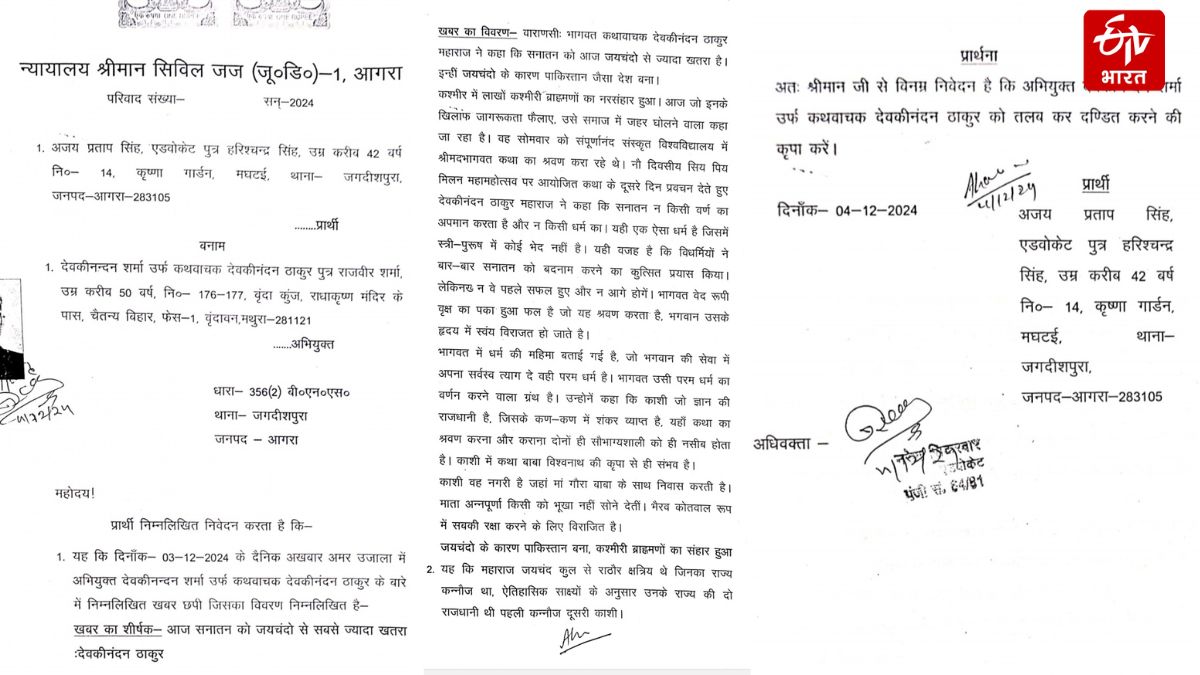 न्यायालय श्रीमान सिविल जज (जू०डि०)–1, आगरा
परिवाद संख्या– सन्–2024
1. अजय प्रताप सिंह, एडवोकेट पुत्र हरिश्चन्द्र सिंह, उम्र करीब 42 बर्ष
नि०– 14, कृष्णा गार्डन, मघटई, थाना– जगदीशपुरा,
जनपद–आगरा–283105
........प्रार्थी
बनाम
1. देवकीनन्दन शर्मा उर्फ कथवाचक देवकीनंदन ठाकुर पुत्र राजवीर शर्मा,
उम्र करीब 50 बर्ष, नि०– 176–177, वृंदा कुंज, राधाकृष्ण मंदिर के
पास, चैतन्य बिहार, फेस–1, वृंदावन,मथुरा–281121
.......अभियुक्त
धारा– 356(2) बी०एन०एस०
थाना– जगदीशपुरा
जनपद – आगरा
महोदय!
प्रार्थी निम्नलिखित निवेदन करता है कि–
1. यह कि दिनाँक– 03–12–2024 के दैनिक अखबार अमर उजाला में
अभियुक्त देवकीनन्दन शर्मा उर्फ कथवाचक देवकीनंदन ठाकुर के बारे
में निम्नलिखित खबर छपी जिसका विवरण निम्नलिखित है–
खबर का शीर्षक– आज सनातन को जयचंदो से सबसे ज्यादा खतरा
:देवकीनंदन ठाकुर
खबर का विवरण– वाराणसीः भागवत कथावाचक देवकीनंदन ठाकुर
महाराज ने कहा कि सनातन को आज जयचंदो से ज्यादा खतरा है।
इन्हीं जयचंदो के कारण पाकिस्तान जैसा देश बना।
कश्मीर में लाखों कश्मीरी ब्राह्मणों का नरसंहार हुआ। आज जो इनके
खिलाफ जागरूकता फैलाए, उसे समाज में जहर घोलने वाला कहा
जा रहा है। वह सोमवार को संपूर्णानंद संस्कृत विश्वविद्यालय में
श्रीमदभागवत कथा का श्रवण करा रहे थे। नौ दिवसीय सिय पिय
मिलन महामहोत्सव पर आयोजित कथा के दूसरे दिन प्रवचन देते हुए
देवकीनंदन ठाकुर महाराज ने कहा कि सनातन न किसी वर्ण का
अपमान करता है और न किसी धर्म का। यही एक ऐसा धर्म है जिसमें
स्त्री–पुरूष में कोई भेद नहीं है। यही वजह है कि विधर्मियों ने
बार–बार सनातन को बदनाम करने का कुत्सित प्रयास किया।
लेकिनख न वे पहले सफल हुए और न आगे होगें। भागवत वेद रूपी
वृक्ष का पका हुआ फल है जो यह श्रवण करता है, भगवान उसके
हृदय में स्वंय विराजत हो जाते है।
भागवत में धर्म की महिमा बताई गई है, जो भगवान की सेवा में
अपना सर्वस्व त्याग दे वही परम धर्म है। भागवत उसी परम धर्म का
वर्णन करने वाला ग्रंथ है। उन्होनें कहा कि काशी जो ज्ञान की
राजधानी है, जिसके कण–कण में शंकर व्याप्त है, यहाँ कथा का
श्रवण करना और कराना दोनों ही सौभाग्यशाली को ही नसीब होता
है। काशी में कथा बाबा विश्वनाथ की कृपा से ही संभव है।
काशी वह नगरी है जहां मां गौरा बाबा के साथ निवास करती है।
माता अन्नपूर्णा किसी को भूखा नहीं सोने देतीं। भैरव कोतवाल रूप
में सबकी रक्षा करने के लिए विराजित है।
जयचंदो के कारण पाकिस्तान बना, कश्मीरी ब्राह्मणों का संहार हुआ
2. यह कि महाराज जयचंद कुल से राठौर क्षत्रिय थे जिनका राज्य
कन्नौज था, ऐतिहासिक साक्ष्यों के अनुसार उनके राज्य की दो
राजधानी थी पहली कन्नौज दूसरी काशी।
etv
भारत
प्रार्थना
अतः श्रीमान जी से विनम्र निवेदन है कि अभियुक्त शर्मा
उर्फ कथवाचक देवकीनंदन ठाकुर को तलव कर दण्डित करने की
कृपा करें।
4/12/24
दिनाँक– 04–12–2024
प्रार्थी
अजय प्रताप सिंह,
एडवोकेट पुत्र हरिश्चन्द्र
सिंह, उम्र करीब 42 बर्ष
नि०– 14, कृष्णा गार्डन,
मघटई, थाना–
जगदीशपुरा,
जनपद–आगरा–283105
अधिवक्ता –
पंजी सं. 64/81